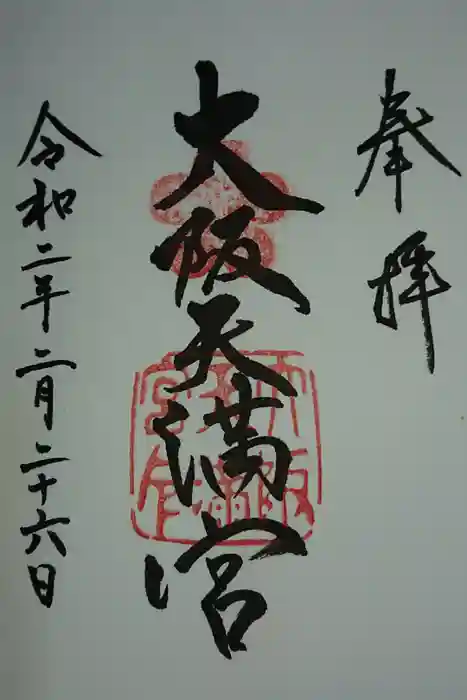 奉拝
大阪天満宮
令和二年二月二十六日